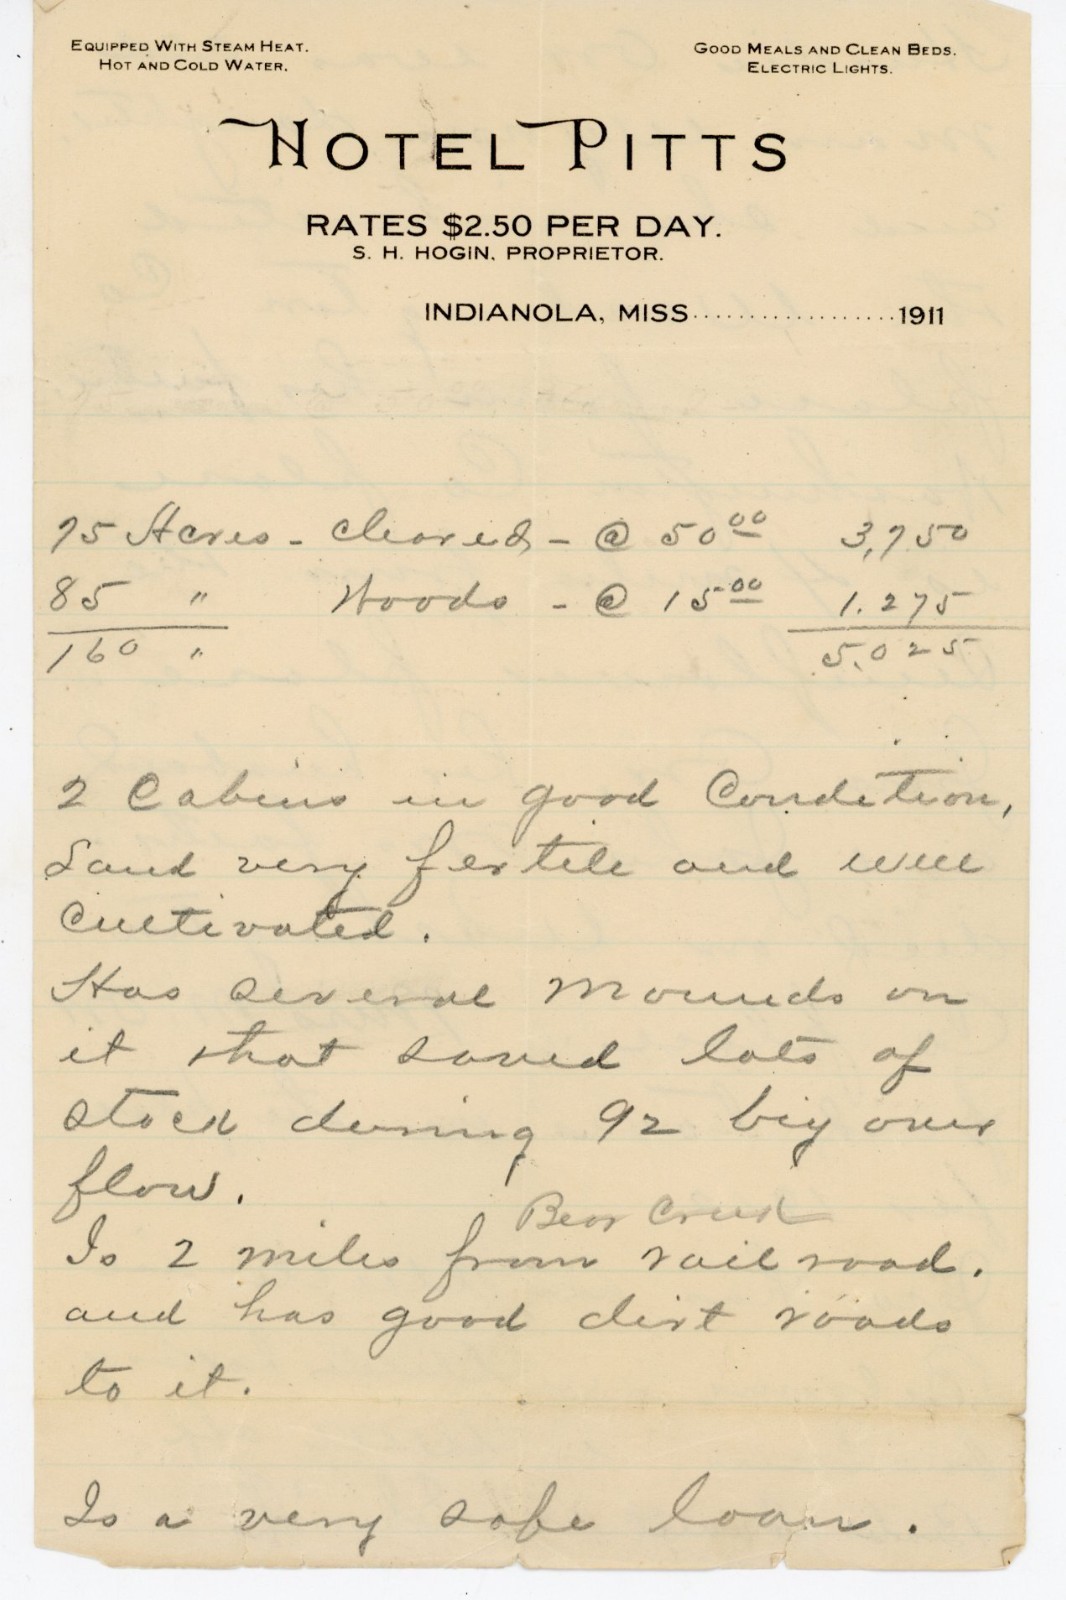 EQUIPPED WITH STEAM HEAT.
HOT AND COLD WATER.
GOOD MEALS AND CLEAN BEDS.
ELECTRIC LIGHTS.
HOTEL PITTS
RATES $2.50 PER DAY.
S. H. HOGIN, PROPRIETOR.
INDIANOLA, MISS...................1911
75 Acres - Cleared - @ 50 00 3,750
85 " Woods - @ 15 00 1.275
160 " 5.025
2 Cabins in good Condition,
Land very fertile and well
Cultivated.
Has several Mounds on
it that saved lots of
stock during 92 big over
flow.
Bear Creek
Is 2 miles from rail road.
and has good dirt roads
to it.
Is a very safe loan.